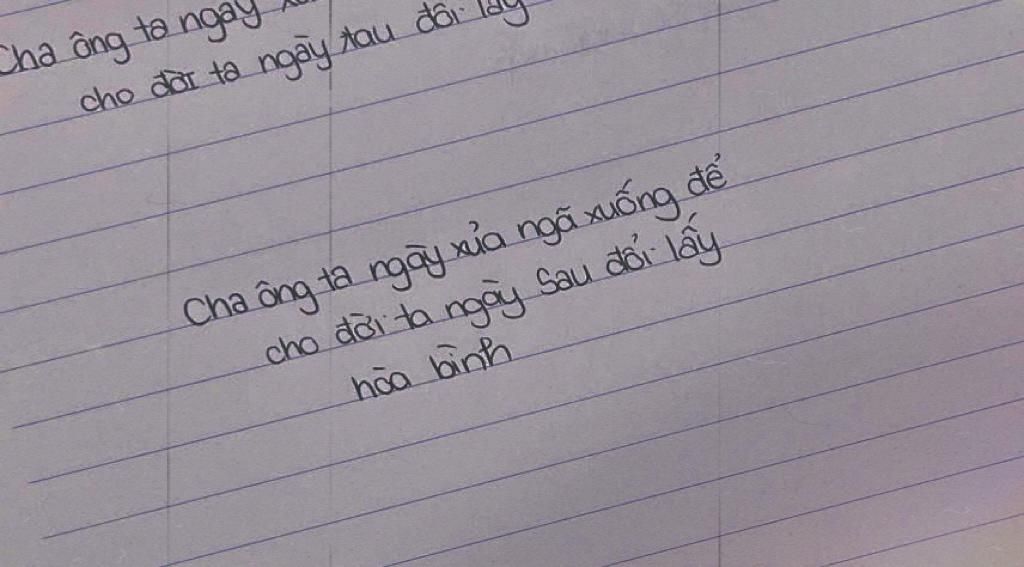 Cha ông ta ngày
cho đời ta ngày sau đổi lấy
Cha ông ta ngày xưa ngã xuống để
cho đời ta ngày sau đổi lấy
hòa bình